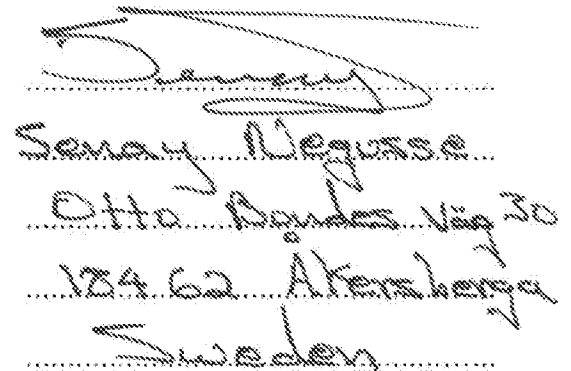 Senay
Senay Negusse
Otto Bondes Väg 30
184 62 Åkersberga
Sweden